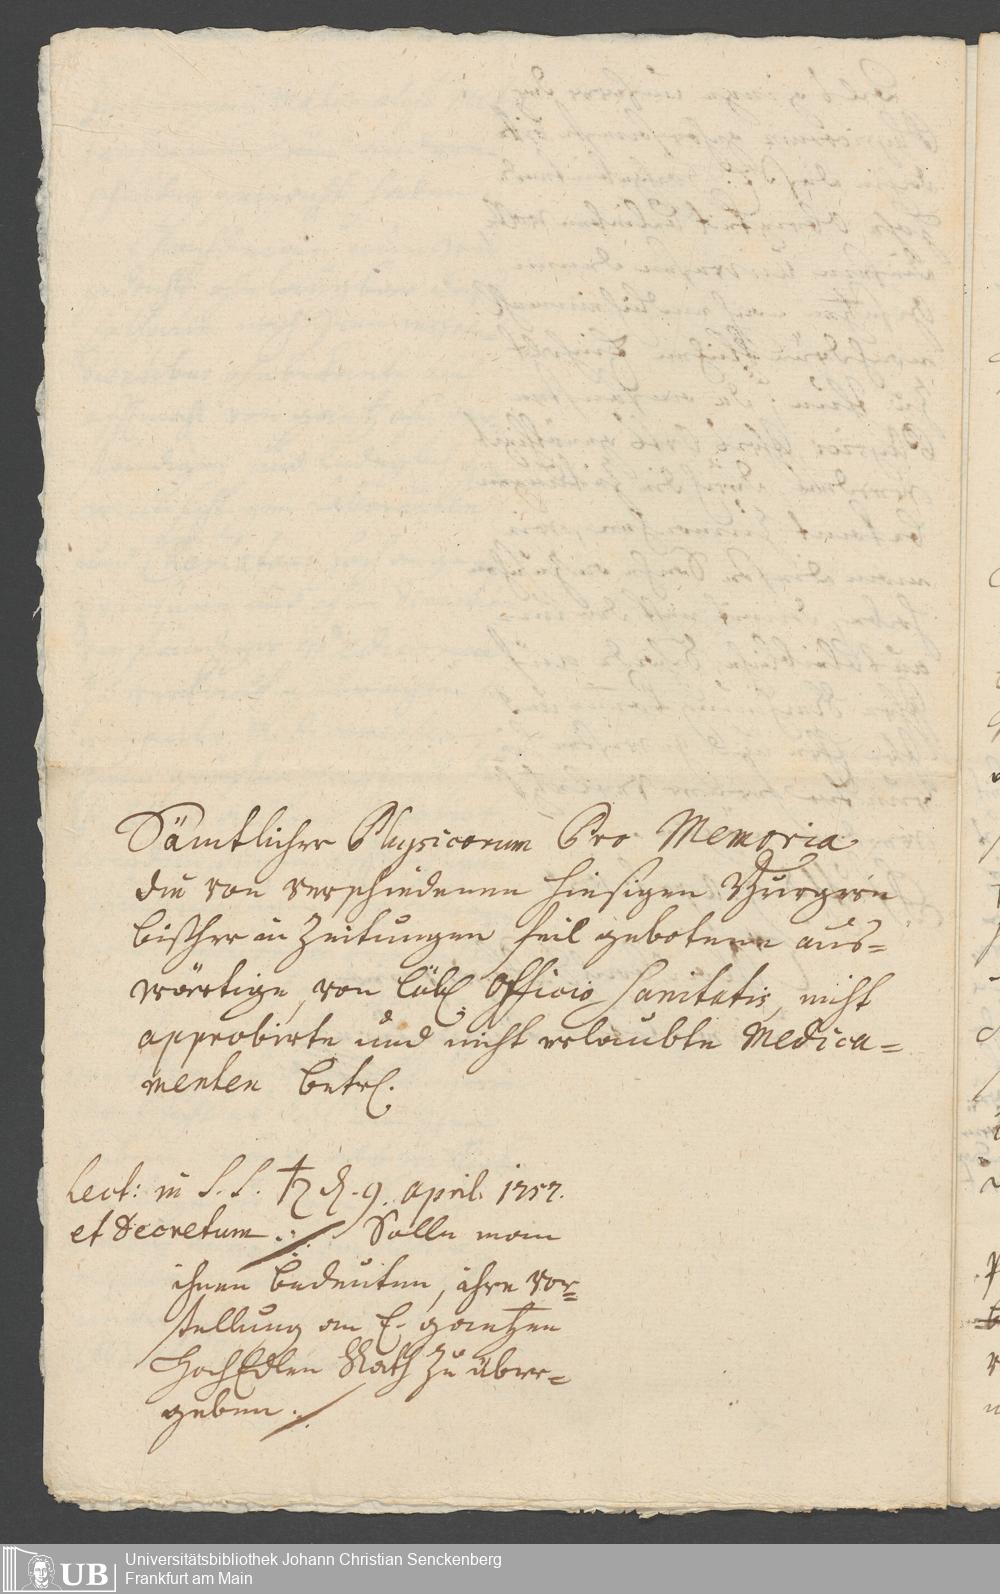 Sämtlicher Physicorum Pro Memoria
die von verschiedenen hiesigen Burgern
bißher in Zeitungen feil gebotene aus=
wärtige, von löbl. Officio Sanitatis, nicht
approbirte und nicht erlaubte Medica=
menten betrl.
Lect: in S. S. ♄ d. 9. april. 1757.
et decretum ./. Solle man
ihnen bedeuten, ihre vor=
stellung an E. gantzen
HochEdlen Rath zu über=
geben ./.
Universitätsbibliothek Johann Christian Senckenberg
Frankfurt am Main
UB